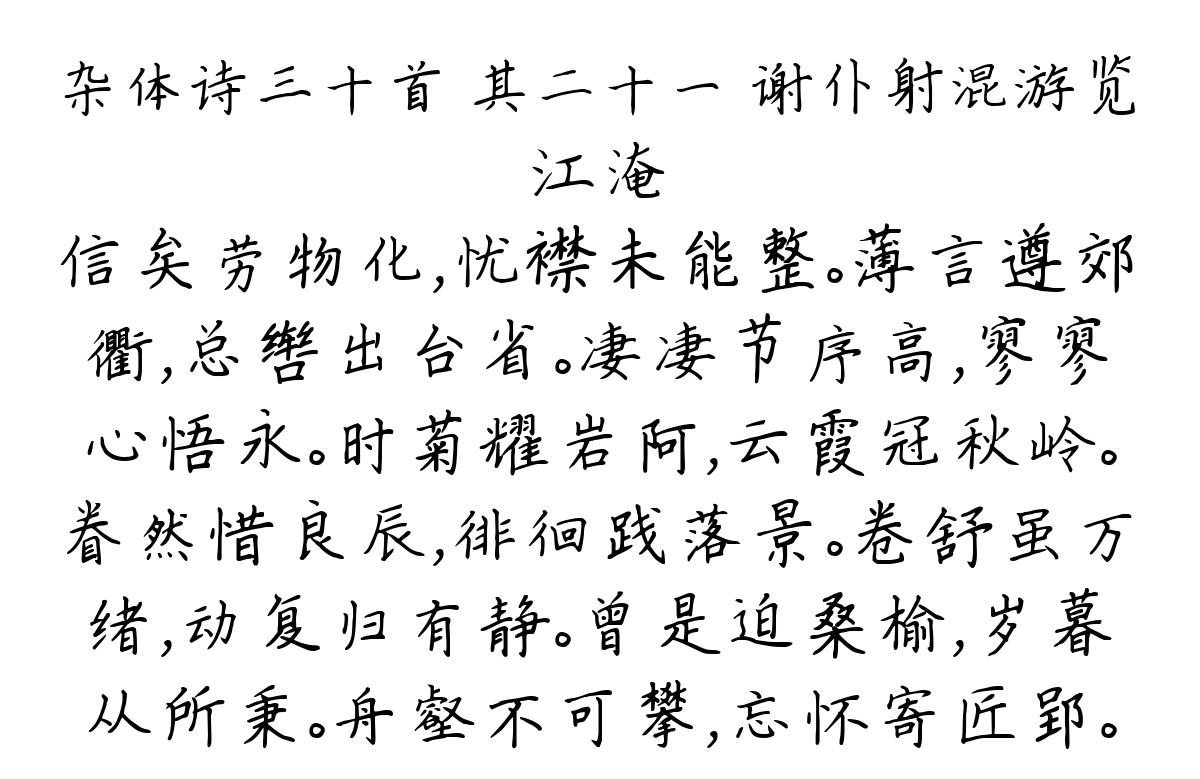 杂体诗三十首 其二十一 谢仆射混游览
江淹
信矣劳物化,忧襟未能整。薄言遵郊
衢,总辔出台省。凄凄节序高,寥寥
心悟永。时菊耀岩阿,云霞冠秋岭。
眷然惜良辰,徘徊践落景。卷舒虽万
绪,动复归有静。曾是迫桑榆,岁暮
从所秉。舟壑不可攀,忘怀寄匠郢。